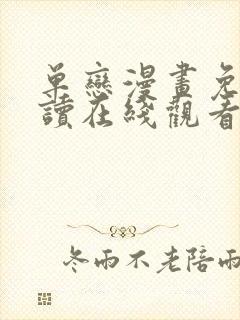 單戀漫畫免
讀在綫觀看
冬雨不老陪雨